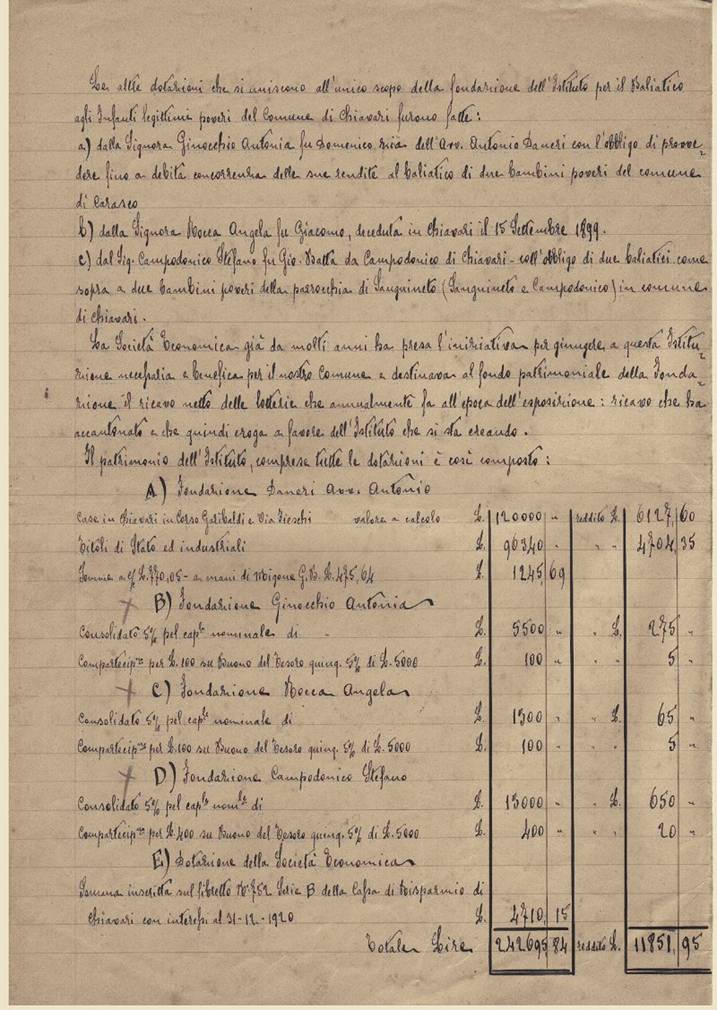 Le altre dotazioni che si uniscono all'unico scopo della fondazione dell'Istituto per il Baliatico
agli Infanti legittimi poveri del Comune di Chiavari furono fatte:
a) dalla Signora Ginocchio Antonia fu Domenico, zia dell'Avv. Antonio Daneri con l'obbligo di provve-
dere fino a debita concorrenza delle sue rendite al baliatico di due bambini poveri del comune
di Carasco
b) dalla Signora Rocca Angela fu Giacomo, deceduta in Chiavari il 15 Settembre 1899.
c) dal Sig. Campodonico Stefano fu Gio. Batta da Campodonico di Chiavari - coll'obbligo di due baliatici come
sopra a due bambini poveri della parrocchia di Sanguineto (Sanguineto e Campodonico) in comune
di Chiavari.
La Società Economica già da molti anni ha presa l'iniziativa per giungere a questa Istitu-
zione necessaria e benefica per il nostro Comune e destinava al fondo patrimoniale della Fonda-
zione il ricavo netto delle lotterie che annualmente fa all'epoca dell'esposizione: ricavo che ha
accantonato e che quindi eroga a favore dell'Istituto che si sta creando.
Il patrimonio dell'Istituto, comprese tutte le dotazioni è così composto:
A) Fondazione Daneri Avv. Antonio
Case in Chiavari in Corso Garibaldi e Via Fieschi valore a calcolo £. 120000 " reddito £. 6127,60
Titoli di Stato ed industriali £. 96340 " " " 4704,35
Somma a c/ £.770,05 - a mani di Migone G.B. £.475,64 £. 1245,69
B) Fondazione Ginocchio Antonia
Consolidato 5% pel cap.le nominale di " £. 5500 " " £. 275 "
Compartecip.ne per £.100 su Buono del Tesoro quinq. 5% di £.5000 £. 100 " " " 5 "
C) Fondazione Rocca Angela
Consolidato 5% pel cap.le nominale di £. 1300 " " £. 65 "
Compartecip.ne per £.100 su Buono del Tesoro quinq. 5% di £.5000 £. 100 " " " 5 "
D) Fondazione Campodonico Stefano
Consolidato 5% pel cap.le nom.le di £. 13000 " " £. 650 "
Compartecip.ne per £.400 su Buono del Tesoro quinq. 5% di £.5000 £. 400 " " " 20 "
E) Dotazione della Società Economica
Somma inscritta sul libretto N.º 752 Serie B della Cassa di Risparmio di
Chiavari con interessi al 31-12-1920 £. 4710,15
Totale Lire 242695,84 reddito £. 11851,95